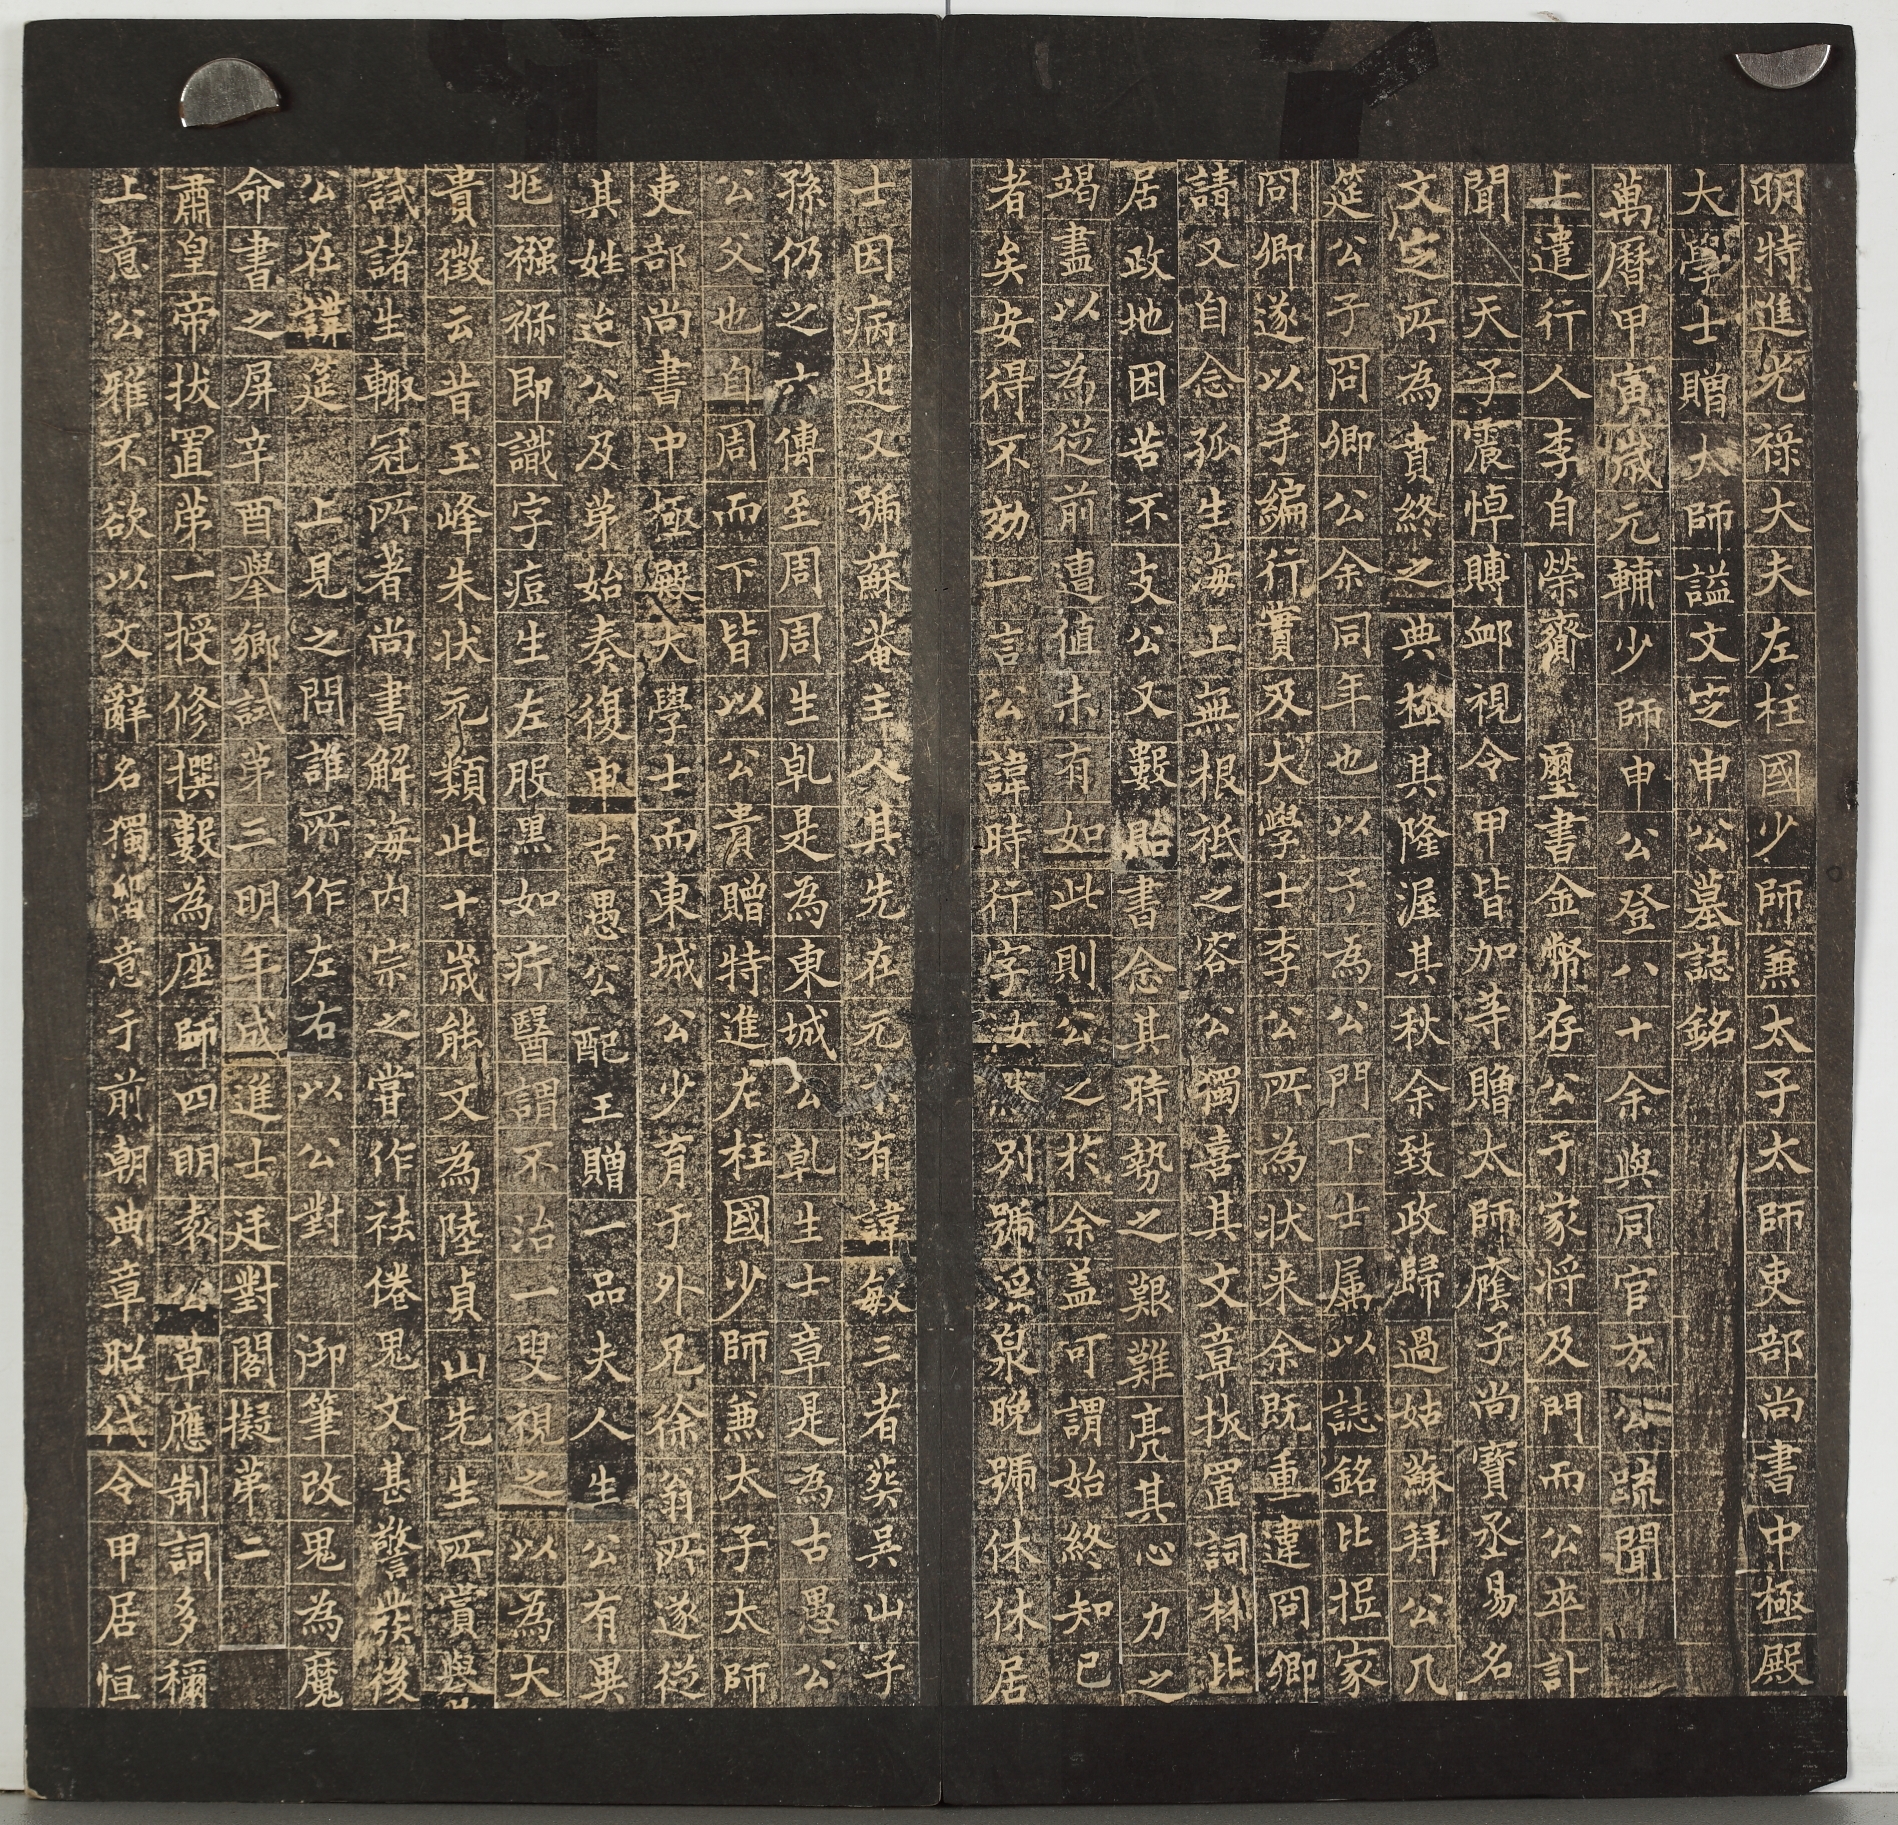 明特進光祿大夫左柱國少師兼太子太師吏部尚書中極殿
大學士贈太師謚文定申公墓誌銘
萬曆甲寅歲元輔少師申公登八十余與同官方公疏聞
上遣行人李自榮齎璽書金幣存公于家將及門而公卒訃
聞天子震悼賻卹視令甲皆加等贈太師廕子尚寶丞易名
文定所為賁終之典極其隆渥其秋余致政歸過姑蘇拜公几
筵公子冏卿公余同年也以予為公門下士屬以誌銘比抵家
冏卿遂以手編行實及大學士李公所為状来余既重違冏卿
請又自念孤生海上無根祗之容公獨喜其文章拔置詞林比
居政地困苦不支公又數貽書念其時勢之艱難亮其心力之
竭盡以為從前遭值未有如此則公之於余盖可謂始終知已
者矣安得不効一言公諱時行字汝默別號瑤泉晚號休休居
士因病起又號蘇菴主人其先在元末有諱敏三者葵吳山子
孫仍之六傳至周周生乹是為東城公乹生士章是為古愚公
公父也自周而下皆以公貴贈特進左柱國少師兼太子太師
吏部尚書中極殿大學士而東城公少育于外兄徐翁所遂從
其姓迨公及第始奏復申古愚公配王贈一品夫人生公有異
尫襁褓即識字痘生左股黑如疔醫謂不治一叟視之以為大
貴徵云昔玉峰朱状元類此十歲能文為陸貞山先生所賞與
試諸生輙冠所著尚書解海内宗之嘗作祛倦鬼文甚警後
公在講筵上見之問誰所作左右以公對御筆改鬼為魔
命書之屏辛酉舉鄉試第三明年成進士廷對閣擬第二
肅皇帝拔置第一授修撰數為座師四明袁公草應制詞多稱
上意公雅不欲以文辭名獨留意于前朝典章昭代令甲居恒